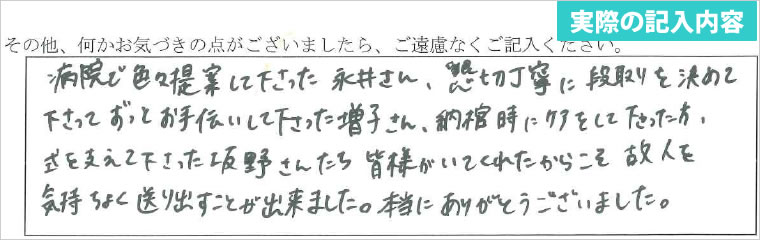 実際の記入内容
その他、何かお気づきの点がございましたら、ご遠慮なくご記入ください。
病院で色々提案して下さった永井さん、懇切丁寧に段取りを決めて
下さってずっとお手伝いして下さった増子さん、納棺時にケアをして下さった方、
式を支えて下さった坂野さんたち皆様がいてくれたからこそ故人を
気持ちよく送り出すことが出来ました。本当にありがとうございました。